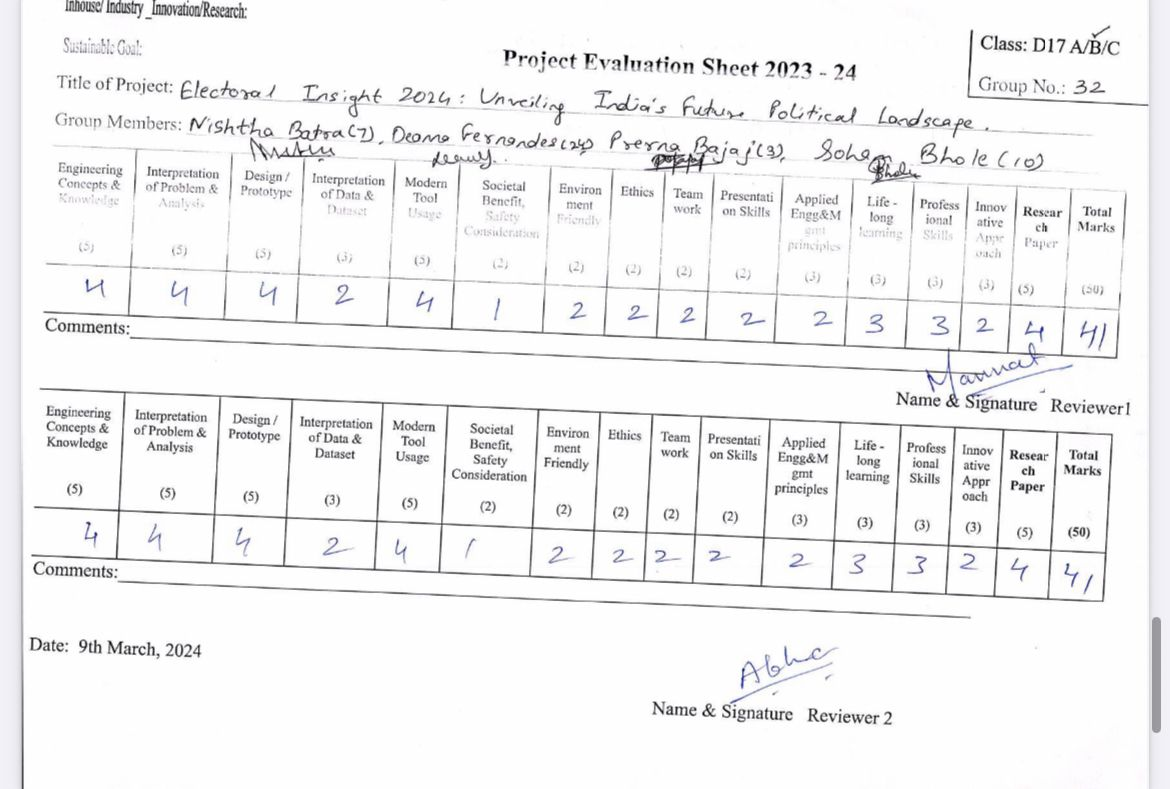 Inhouse/ Industry _Innovation/Research:
Sustainable Goal:
Project Evaluation Sheet 2023 - 24
Class: D17 A/B/C
Group No.: 32
Title of Project: Electoral Insight 2024: Unveiling India's Future Political Landscape.
Group Members: Nishtha Batra(7), Deona Fernandes(24) Prerna Bajaj(3), Soham Bhole (10)
Engineering Concepts & Knowledge (5) | Interpretation of Problem & Analysis (5) | Design / Prototype (5) | Interpretation of Data & Dataset (3) | Modern Tool Usage (5) | Societal Benefit, Safety Consideration (2) | Environ ment Friendly (2) | Ethics (2) | Team work (2) | Presentati on Skills (2) | Applied Engg&M gmt principles (3) | Life - long learning (3) | Profess ional Skills (3) | Innov ative Appr oach (3) | Resear ch Paper (5) | Total Marks (50)
4 4 4 2 4 1 2 2 2 2 2 3 3 2 4 41
Comments:
Mannat
Name & Signature Reviewer1
Engineering Concepts & Knowledge (5) | Interpretation of Problem & Analysis (5) | Design / Prototype (5) | Interpretation of Data & Dataset (3) | Modern Tool Usage (5) | Societal Benefit, Safety Consideration (2) | Environ ment Friendly (2) | Ethics (2) | Team work (2) | Presentati on Skills (2) | Applied Engg&M gmt principles (3) | Life - long learning (3) | Profess ional Skills (3) | Innov ative Appr oach (3) | Resear ch Paper (5) | Total Marks (50)
4 4 4 2 4 1 2 2 2 2 2 3 3 2 4 41
Comments:
Date: 9th March, 2024
Abha
Name & Signature Reviewer 2